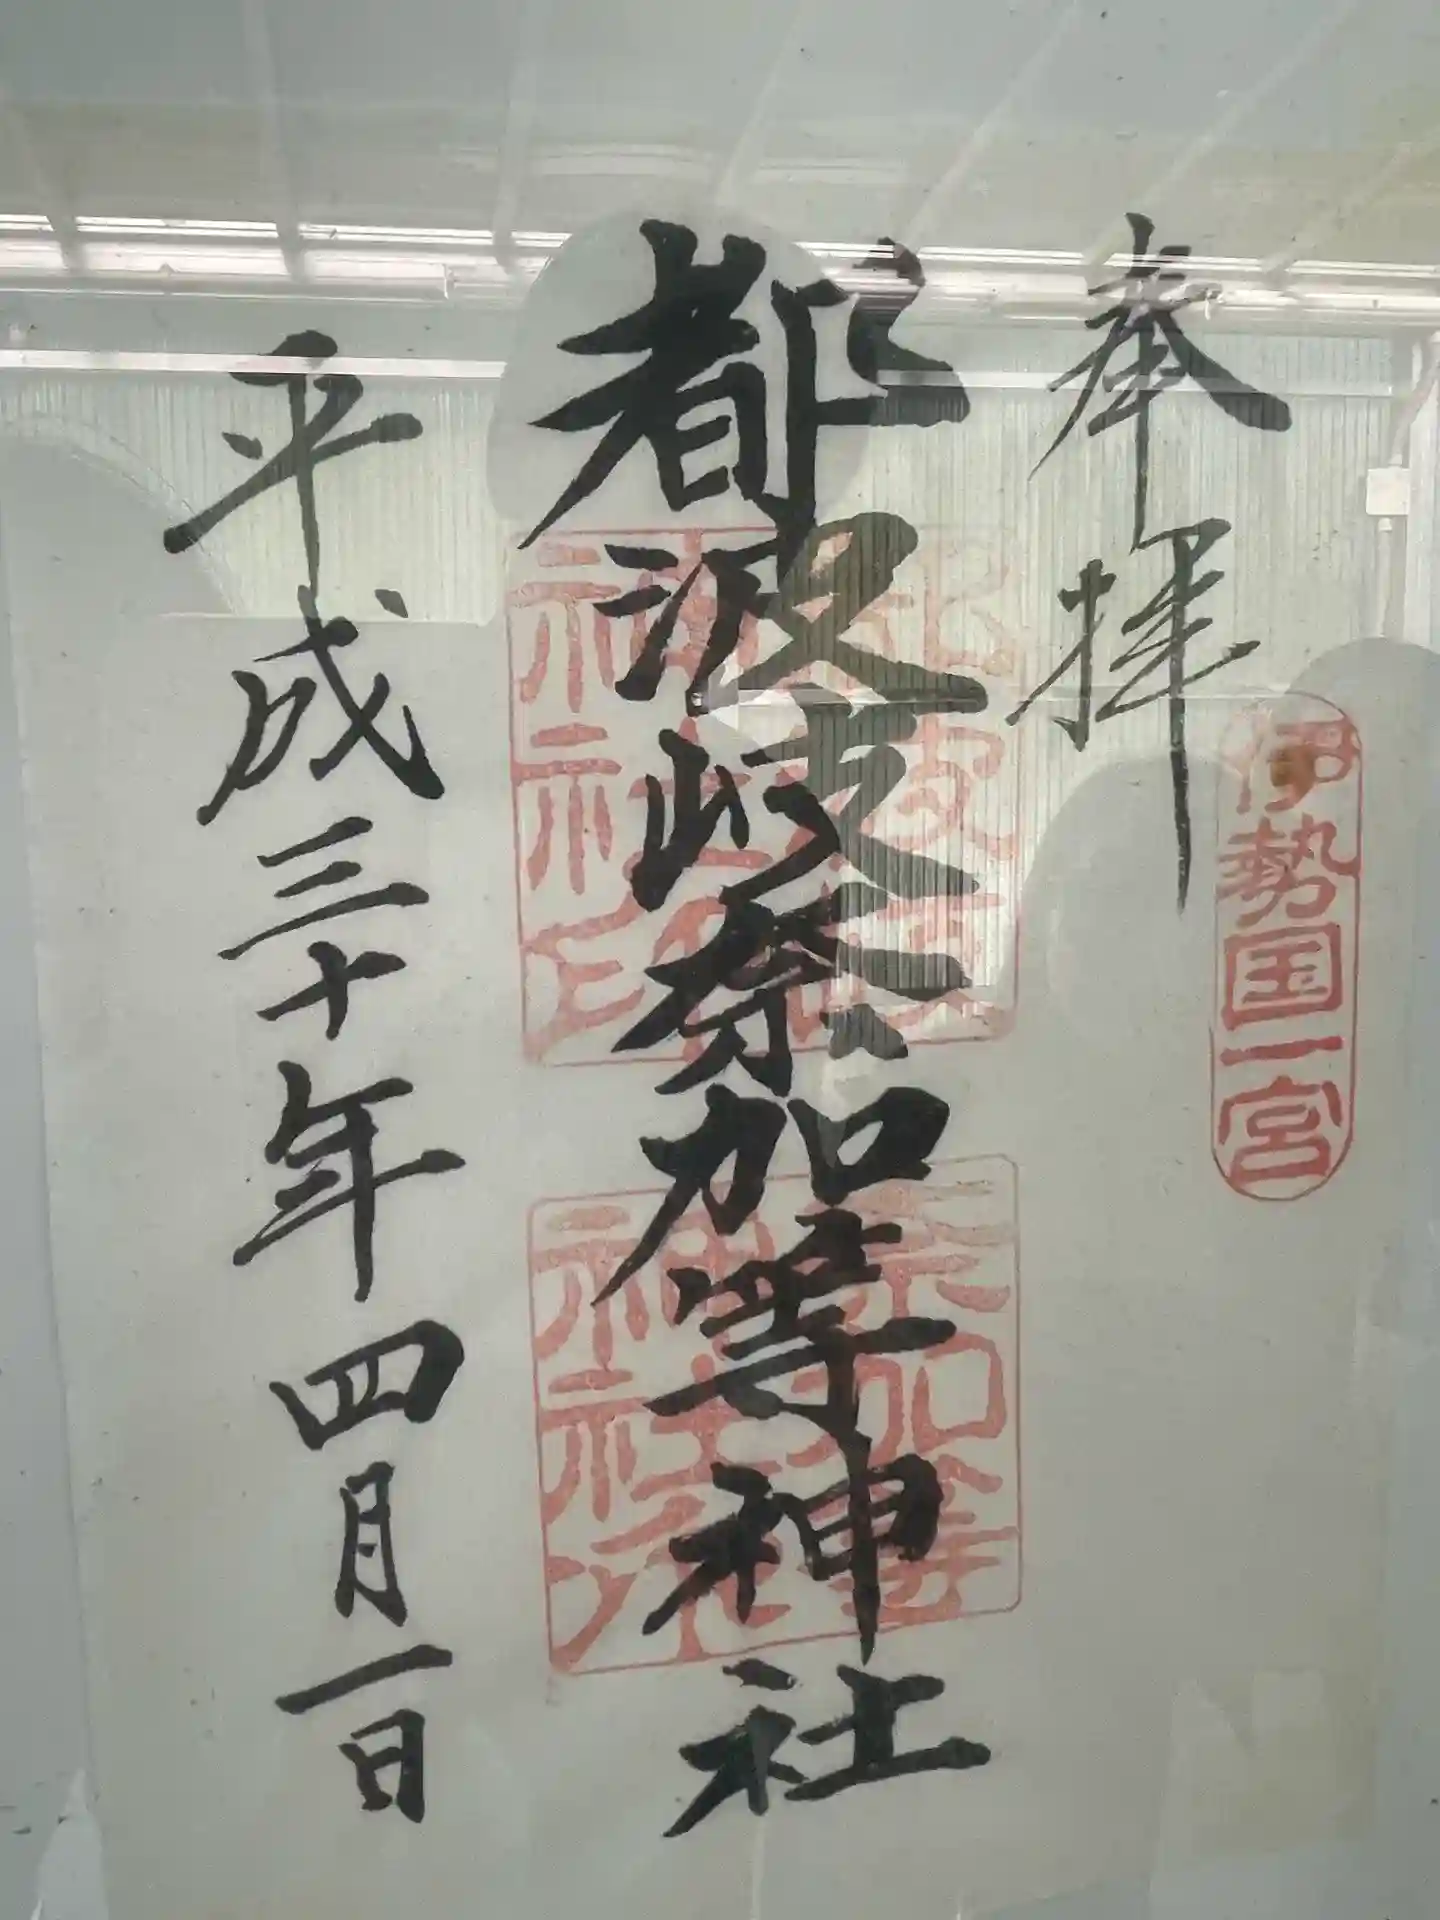 奉拝
伊勢国一宮
都波岐奈加等神社
都波岐
神社印
奈加等
神社
平成三十年四月一日